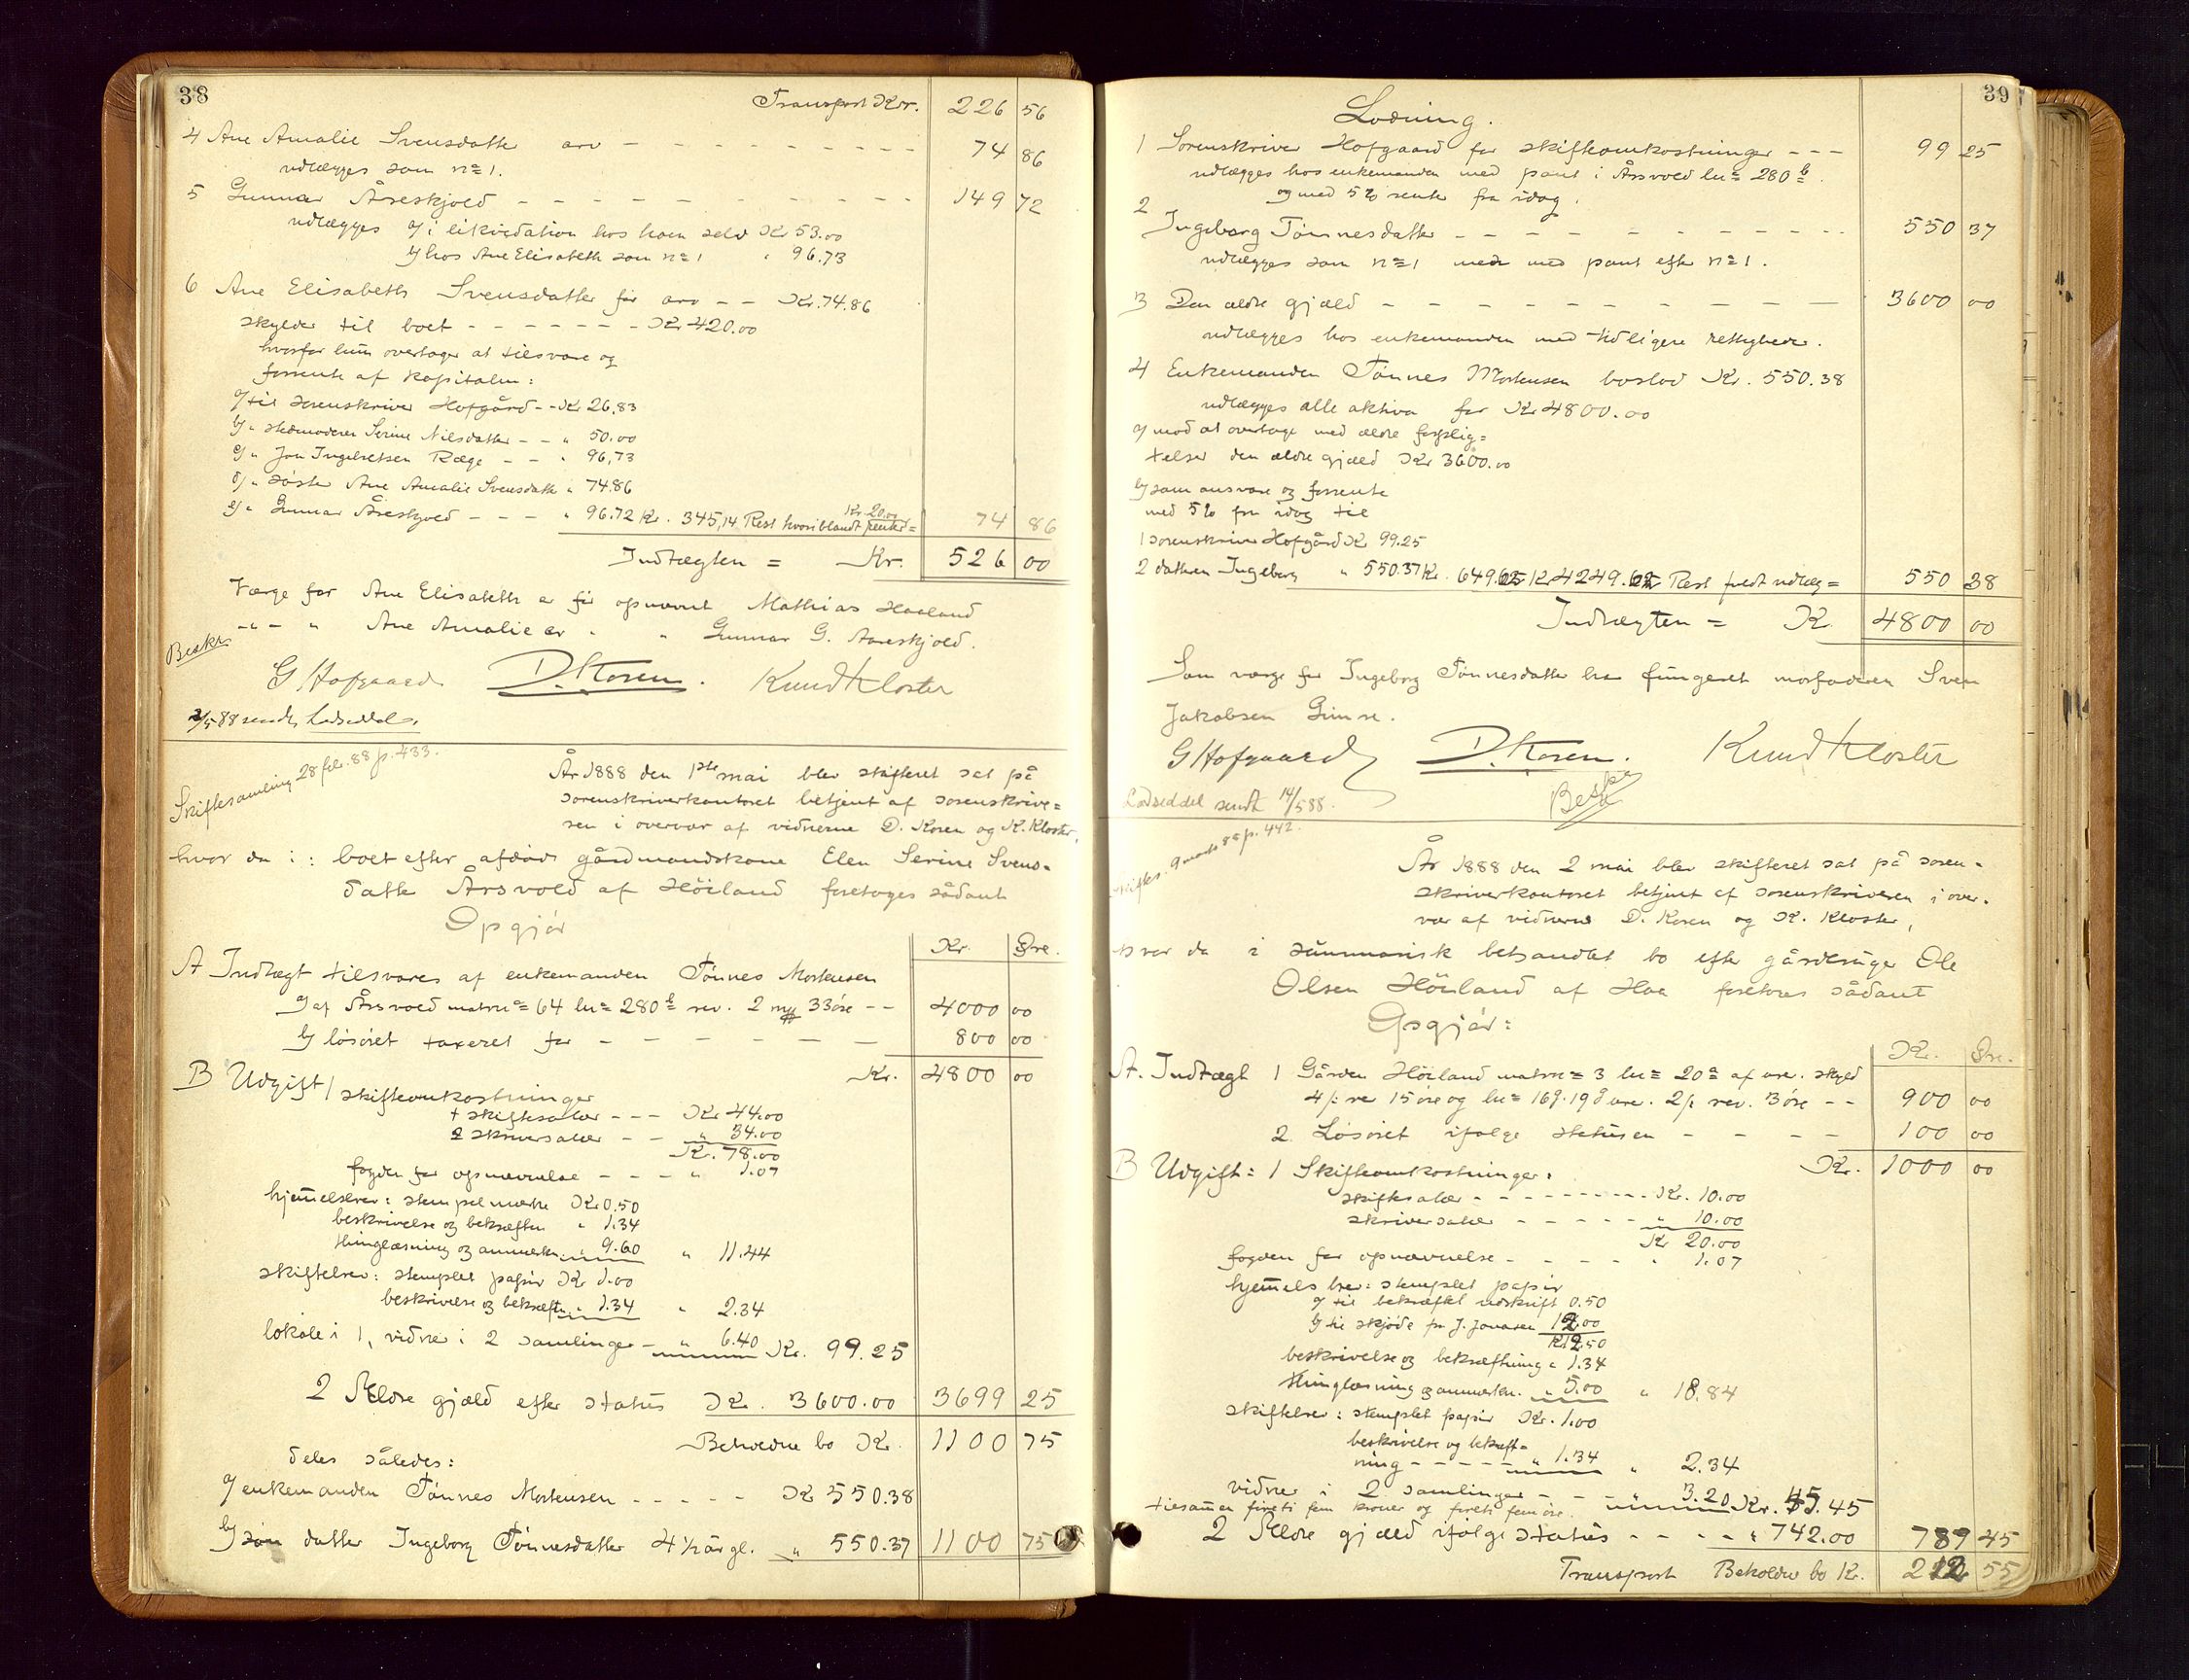 38
Transport Kr. 226 56
4 Ane Amalie Svensdatter arv - - - - - - - - - 74 86
udlægges som no 1.
5 Gunnar Åreskjold - - - - - - - - - 149 72
udlægges a/ i likvidation hos ham selv Kr 53.00
b/ hos Ane Elisabeth som no 1 " 96.73
6 Ane Elisabeth Svensdatter får arv - - Kr. 74.86
skylder til boet - - - - - - - Kr 420.00
hvorfor hun overtager at tilsvare og
forrente af kapitalen:
a/ til sorenskriver Hofgård - - Kr 26,83
b/ " stedmoderen Serine Nilsdatter - - " 50.00
c/ " Jon Ingebretsen Ræge - - " 96,73
d/ " søster Ane Amalie Svensdatter " 74.86
e/ " Gunnar Åreskjold - - - " 96.72 Kr. 345,14 Rest hvoriblandt Kr 20.00 renter = 74 86
Indtægten = Kr. 526 00
Værge for Ane Elisabeth er får opnævnt Mathias Haaland
-"- " Ane Amalie er " " Gunnar G. Aareskjold.
Beskr.
G Hofgaard D. Kosen. Knud Kloster
2/5 88 sendt Lodseddel.
Skiftesamling 28 feb. 88 p. 433.
År 1888 den 1ste mai blev skifteret sat på
sorenskriverkontoret betjent af sorenskrive=
ren i overvær af vidnerne D. Kosen og K. Kloster,
hvor da i: boet efter afdøde gårdmandskone Elen Serine Svens-
datter Årsvold af Höiland foretoges sådant
Opgjör
Kr. Øre.
A Indtægt tilsvares af enkemanden Tønnes Mortensen
a/ af Årsvold matr no 64 lno 280 b rev. 2 my 33 öre - - 4000 00
b/ løsöret taxeret for - - - - - - 800 00
Kr. 4800 00
B Udgift 1 skifteomkostninger
+ skiftesalær - - - Kr 44.00
2 skriversalær - - " 34.00
Kr. 78.00
fogden for opnævnelse - - - " 1.07
hjemmelsbrev: stempelmærke Kr 0.50
beskrivelse og bekræften " 1.34
thinglæsning og anmærkn. " 9.60 " 11.44
skiftebrev: stemplet papir Kr 1.00
beskrivelse og bekræftn. " 1.34 " 2.34
lokale i 1, vidner i 2 samlinger - " 6.40 Kr. 99.25
2 Ældre gjæld efter status Kr. 3600.00 3699 25
Beholdne bo Kr. 1100 75
deles således:
a/ enkemanden Tønnes Mortensen - - - - - Kr 550.38
b/ datter Ingeborg Tønnesdatter 4 1/2 år gl. " 550.37 1100 75
39
Lodning.
1 Sorenskriver Hofgaard for skifteomkostninger - - - 99 25
udlægges hos enkemanden med pant i Årsvold lno 280 b.
og med 5% rente fra idag.
2
Ingeborg Tønnesdatter - - - - - - - - - 550 37
udlægges som no 1 med pant efter no 1.
3 Den ældre gjæld - - - - - - - - - 3600 00
udlægges hos enkemanden med tidligere rettigheder.
4 Enkemanden Tønnes Mortensen boslod Kr. 550.38
udlægges alle aktiva for Kr 4800.00
a/ mod at overtage med ældre forplig=
telser den ældre gjæld Kr 3600.00
b/ som ansvare og forrente
med 5% fra idag til
1 sorenskriver Hofgård Kr 99.25
2 datteren Ingeborg " 550.37 Kr. 649.62 Kr 4249.62 Rest fredt udlæg = 550 38
Indtægten = K. 4800 00
Som værge for Ingeborg Tønnesdatter har fungeret morfaderen Sven
Jakobsen Gimre.
G Hofgaard D. Kosen. Knud Kloster
Lodseddel sendt 14/5 88. Beskr
Skiftes. 9 marts 88 p. 442.
År 1888 den 2 mai blev skifteret sat på soren-
skriverkontoret betjent af sorenskriveren i over-
vær af vidnerne D. Kosen og K. Kloster,
hvor da i summarisk behandlet bo efter gårdbruger Ole
Olsen Höiland af Haa foretoges sådant
Opgjör:
Kr. Øre.
A. Indtægt 1 Gården Höiland matr no 3 lno 20 a af
900 00
2. Løsöret ifølge statusen - - - - 100 00
Kr. 1000 00
B Udgift: 1 Skifteomkostninger:
skiftesalær - - - - - - - - - Kr. 10.00
skriversalær - - - - - " 10.00
Kr 20.00
fogden for opnævnelse - - - - - " 1.07
hjemmelsbrev: stemplet papir
a/ til bekræftet udskrift 0.50
b/ til skjøde fra J. Jonasen 12.00
Kr 12.50
beskrivelse og bekræftning " 1.34
thinglæsning og anmærkn. " 5.00 " 18.84
skiftebrev: stemplet papir Kr. 1.00
beskrivelse og bekræft=
ning - - - - - " 1.34 " 2.34
vidner i 2 samlinger - - - " 3.20 Kr. 45.45
tilsammen firti fem kroner og firti fem øre.
2 Ældre gjæld ifølge status - - - - " 742.00 787 45
Transport Beholdne bo Kr. 212 55